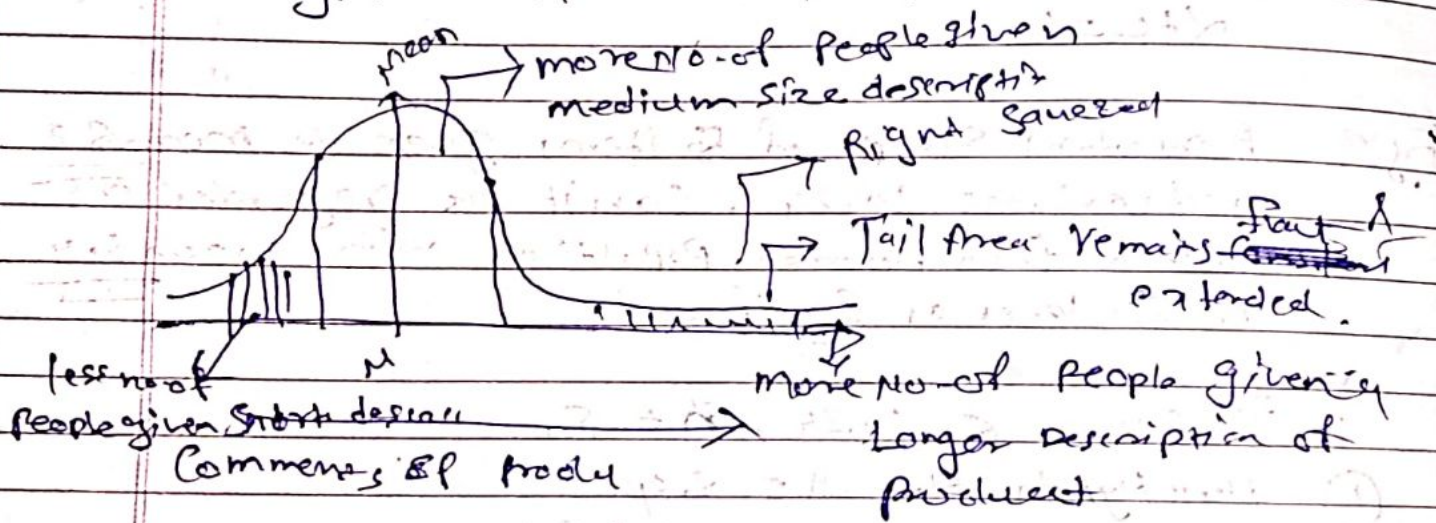 Mean
more No. of People given
medium size descriptn
Right Squezed
Tail Area remains flat &
extended.
less no of
People given Short descn
Comments of produ
M
More No of People given
Longer Description of
Product